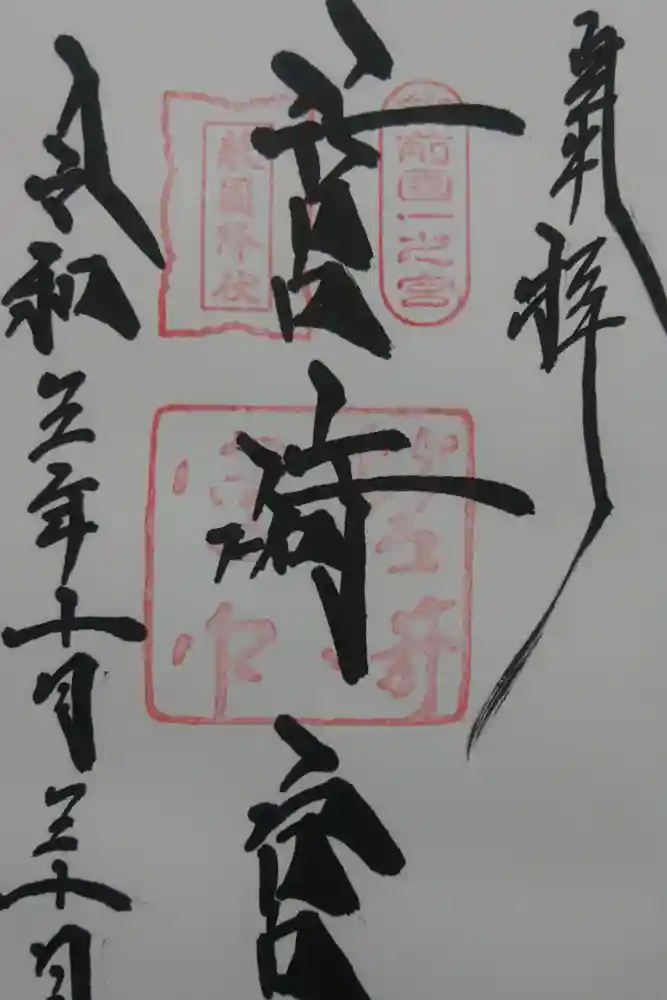 奉拝
筑前國一之宮
筥崎宮
敵國降伏
筥崎宮印
令和三年十月三十日